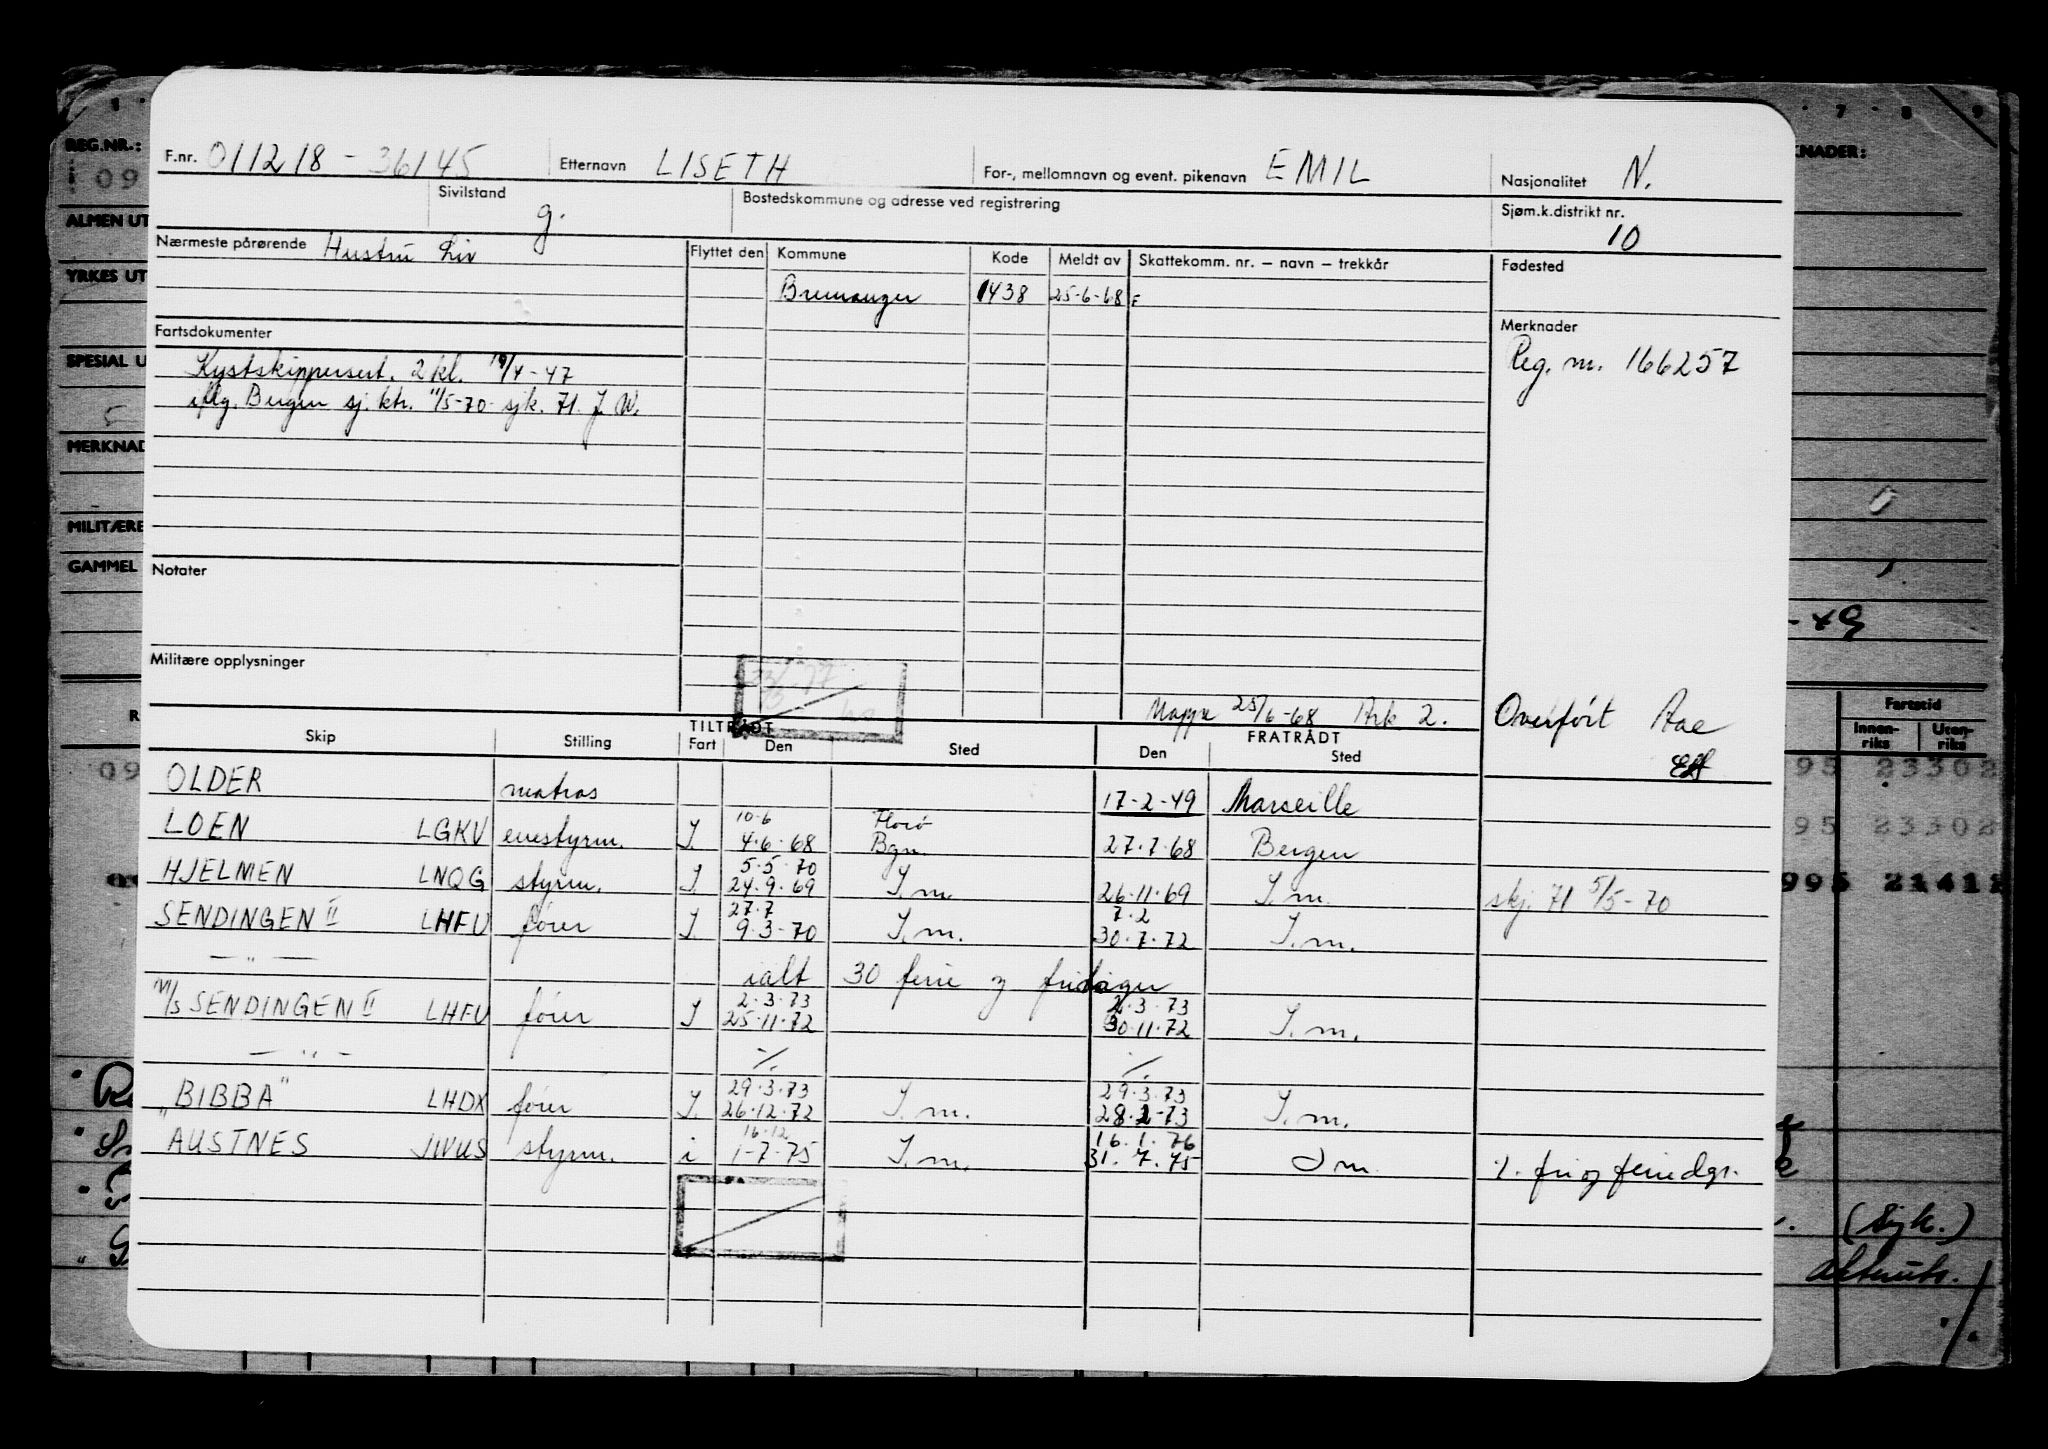 F.nr. 011218-36145 Etternavn LISETH For-, mellomnavn og event. pikenavn EMIL Nasjonalitet N.
Sivilstand g. Bostedskommune og adresse ved registrering Sjøm.k.distrikt nr. 10
Nærmeste pårørende Hustru Liv Flyttet den Kommune Kode Meldt av Skattekomm. nr. – navn – trekkår Fødested
Bremanger 1438 25-6-68 F
Fartsdokumenter Merknader
Kystskippersert. 2 kl. 19/4-47 Reg. nr. 166257
iflg. Bergen sj. ktr. 11/5-70 sjk. 71. J W.
Notater
Militære opplysninger
Mappe 25/6-68 Ark 2. Overført Aae
TILTRÅDT FRATRÅDT
Skip Stilling Fart Den Sted Den Sted
OLDER matros 17-2-49 Marseille
10-6 Florø
LOEN LGKV enestyrm. I 4.6.68 Bgn. 27.7.68 Bergen
5.5.70
HJELMEN LNQG styrm. I 24.9.69 I.m. 26.11.69 I.m. skj. 71 5/5-70
27.7 7.2
SENDINGEN II LHFU fører I. 9.3-70 I.m. 30.7.72 I.m.
— " — ialt 30 ferie og fridager
2.3.73 2.3.73
M/S SENDINGEN II LHFU fører I 25.11.72 30.11.72 I.m.
— " — -/. -/.
29.3.73 29.3.73
"BIBBA" LHDX fører I. 26.12.72 I.m. 28.2-73 I.m.
16.12 16.1.76
"AUSTNES JWUS styrm. i 1-7-75 I.m. 31.7.75 I m. ÷ fri og feriedgr.
REG.NR.:
09
ALMEN UT
YRKES UT
SPESIAL U
5
MERKNAD
MILITÆRE
GAMMEL
7 8 9
KNADER:
-49
Fartstid
Innen-riks Uten-riks
09 95 23302
95 23302
995 21412
(sjk.)